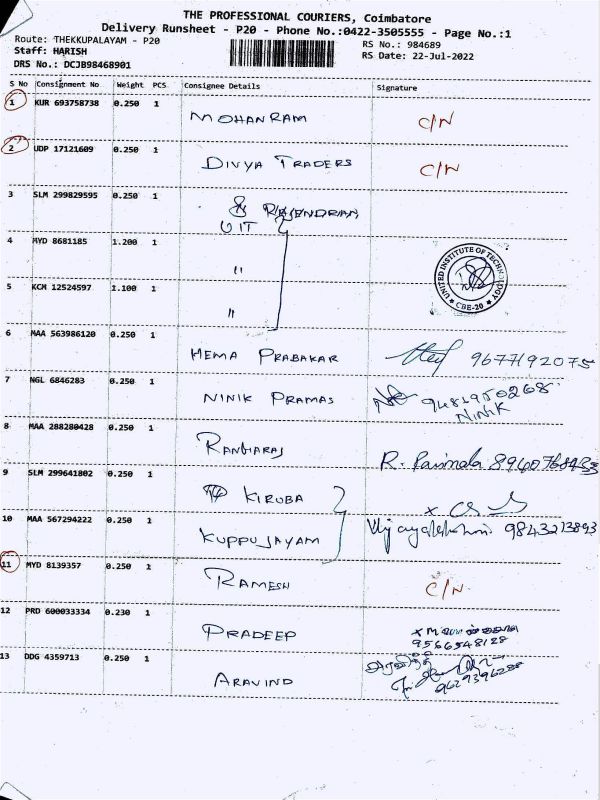 THE PROFESSIONAL COURIERS, Coimbatore
Delivery Runsheet - P20 - Phone No.:0422-3505555 - Page No.:1
Route: THEKKUPALAYAM - P20 RS No.: 984689
Staff: HARISH RS Date: 22-Jul-2022
DRS No.: DCJB98468901
S No Consignment No Weight PCS Consignee Details Signature
1 KUR 693758738 0.250 1 MOHANRAM C/N
2 UDP 17121609 0.250 1 DIVYA TRADERS C/N
3 SLM 299829595 0.250 1 RAJENDRAN
UIT
4 MYD 8681185 1.200 1 "
UNITED INSTITUTE OF TECHNOLOGY
★ CBE-20 ★
5 KCM 12524597 1.100 1 "
6 MAA 563986120 0.250 1 HEMA PRABAKAR 9677192075
7 NGL 6846283 0.250 1 NINIK PRAMAS 9481950268
NINIK
8 MAA 288280428 0.250 1 R.
9 SLM 299641802 0.250 1 KIRUBA x
10 MAA 567294222 0.250 1 KUPPUJAYAM Vijayalakshmi 9843213893
11 MYD 8139357 0.250 1 RAMESH C/N
12 PRD 600033334 0.230 1 PRADEEP
9566548128
13 DDG 4359713 0.250 1 ARAVIND அரவிந்த்